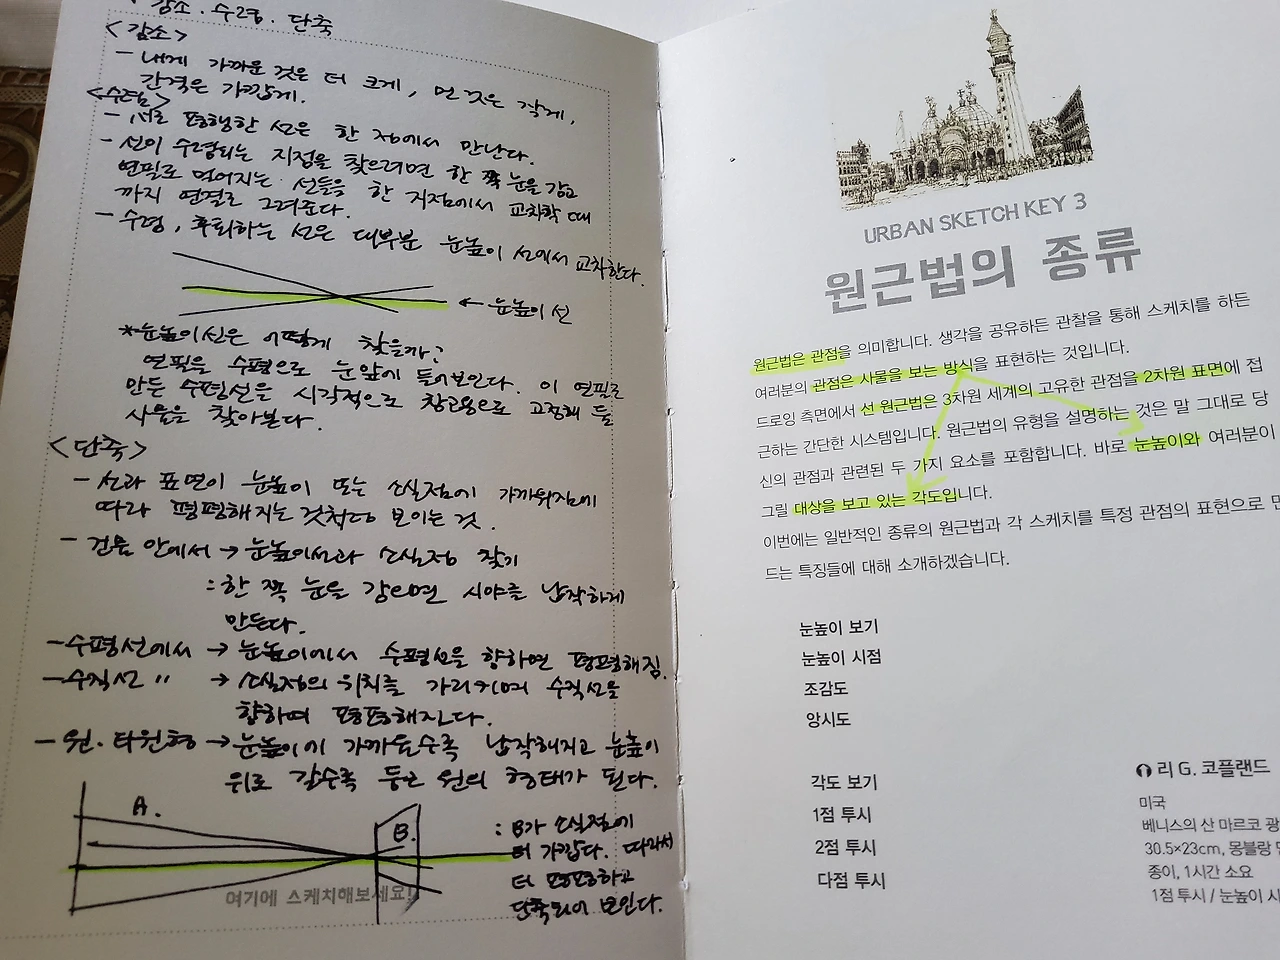 감소. 수렴. 단축
<감소>
- 내게 가까운 것은 더 크게, 먼 것은 작게,
간격은 가깝게.
<수렴>
- 서로 평행한 선은 한 점에서 만난다.
- 선이 수렴되는 지점을 찾으려면 한 쪽 눈을 감고
연필로 멀어지는 선들을 한 지점에서 교차할 때
까지 연결로 그려준다.
- 수렴, 후퇴하는 선은 대부분 눈높이 선에서 교차한다.
← 눈높이 선
*눈높이선은 어떻게 찾을까?
연필을 수평으로 눈앞에 들어보인다. 이 연필로
만든 수평선을 시각적으로 참고용으로 고정해 둘
사물을 찾아본다.
<단축>
- 선과 표면이 눈높이 또는 소실점에 가까워짐에
따라 평평해지는 것처럼 보이는 것.
- 건물 안에서 → 눈높이선과 소실점 찾기
: 한 쪽 눈을 감으면 시야를 납작하게
만든다.
- 수평선에서 → 눈높이에서 수평선을 향하면 평평해짐.
- 수직선 〃 → 소실점의 위치를 가리키며 수직선을
향하여 평평해진다.
- 원. 타원형 → 눈높이에 가까울수록 납작해지고 눈높이
위로 갈수록 둥근 원의 형태가 된다.
A.
B.
: B가 소실점에
더 가깝다. 따라서
더 평평하고
단축되어 보인다.
여기에 스케치해보세요!
URBAN SKETCH KEY 3
원근법의 종류
원근법은 관점을 의미합니다. 생각을 공유하든 관찰을 통해 스케치를 하든
여러분의 관점은 사물을 보는 방식을 표현하는 것입니다.
드로잉 측면에서 선 원근법은 3차원 세계의 고유한 관점을 2차원 표면에 접
근하는 간단한 시스템입니다. 원근법의 유형을 설명하는 것은 말 그대로 당
신의 관점과 관련된 두 가지 요소를 포함합니다. 바로 눈높이와 여러분이
그릴 대상을 보고 있는 각도입니다.
이번에는 일반적인 종류의 원근법과 각 스케치를 특정 관점의 표현으로 만
드는 특징들에 대해 소개하겠습니다.
눈높이 보기
눈높이 시점
조감도
앙시도
각도 보기
1점 투시
2점 투시
다점 투시
리 G. 코플랜드
미국
베니스의 산 마르코 광
30.5×23cm, 몽블랑
종이, 1시간 소요
1점 투시 / 눈높이 시